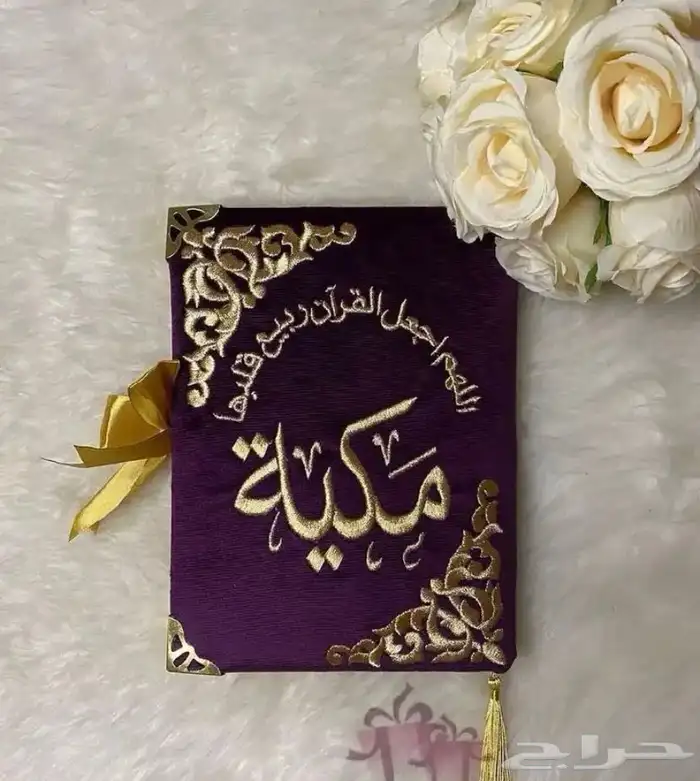 اللهم اجعل القرآن ربيع قلبها
مكية
حراج